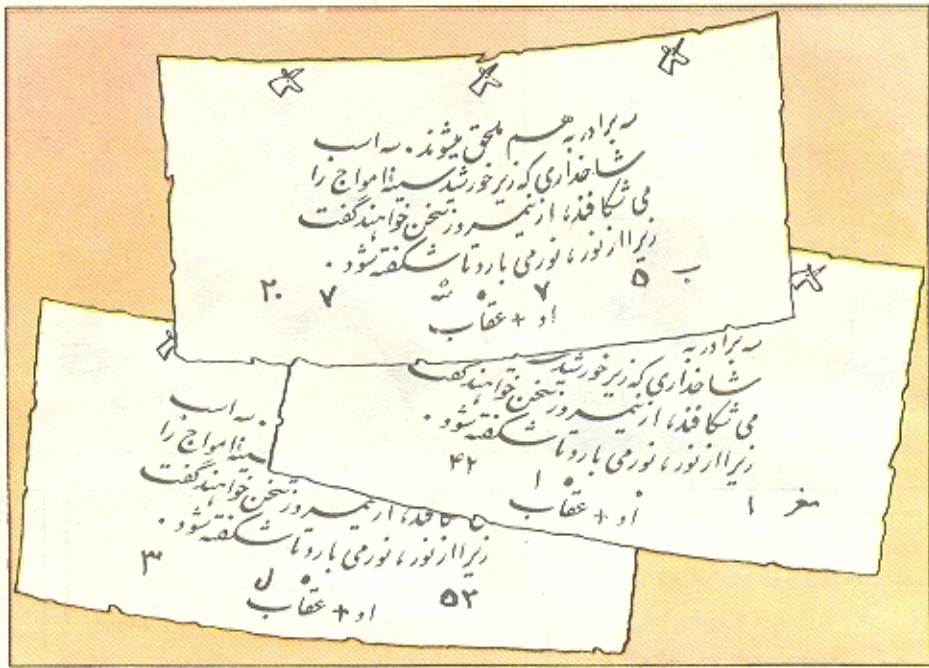 سه برادر به هم ملحق میشوند. سه اسب
شاخداری که زیر خورشید سینهٔ امواج را
می شکافند، از نیمروز سخن خواهند گفت
زیرا از نور، نور می بارد تا شکفته شود.
ب ۵ ۷ شه ۷ ۲۰
او + عقاب
سه برادر به
شاخداری که زیر خورشید
می شکافند، از نیمروز سخن خواهند گفت
زیرا از نور، نور می بارد تا شکفته شود.
مغر ۱ ا ۴۲
او + عقاب
سه اسب
سینهٔ امواج را
شکافند، از نیمروز سخن خواهند گفت
زیرا از نور، نور می بارد تا شکفته شود.
۵۲ ل ۳
او + عقاب